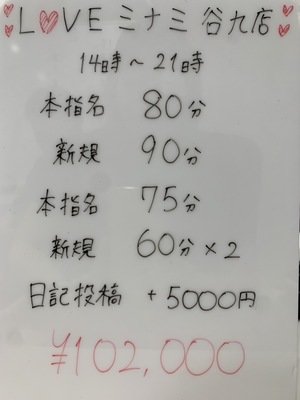 L♥VE ミナミ 谷九店
14時〜21時
本指名 80分
新規 90分
本指名 75分
新規 60分×2
日記投稿 +5000円
¥102,000